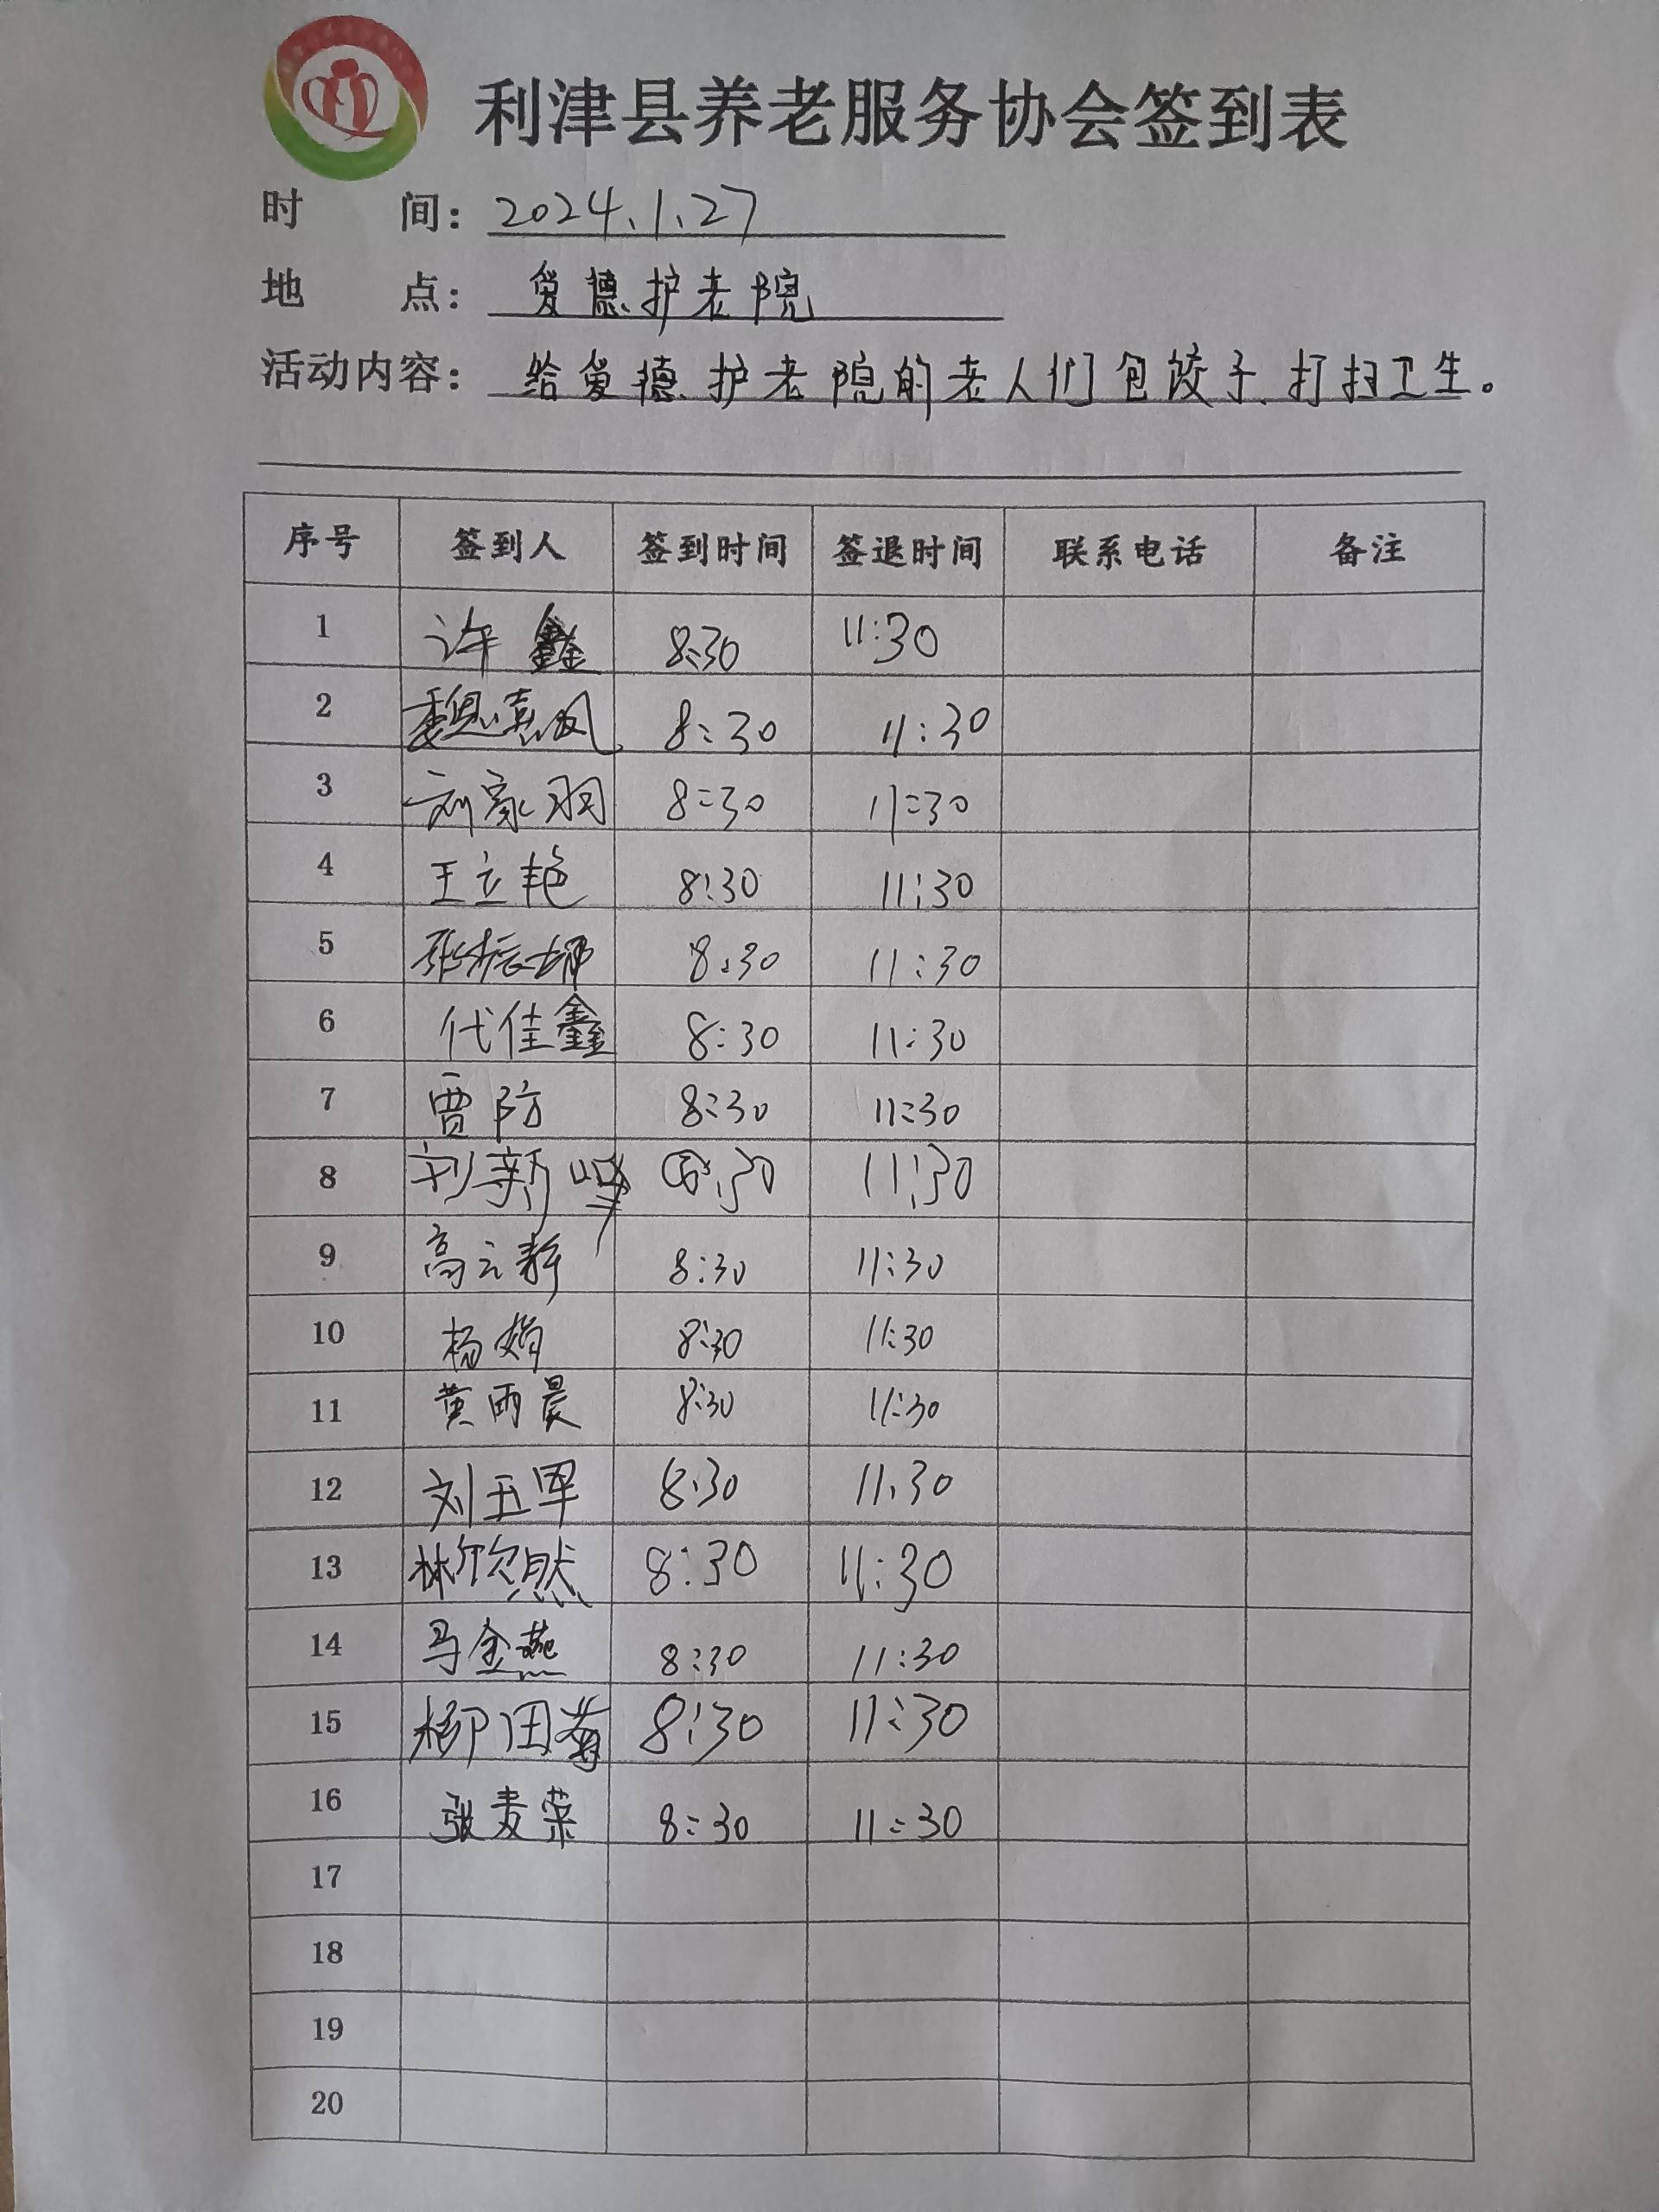 利津县养老服务协会签到表
时 间: 2024.1.27
地 点: 爱德护老院
活动内容: 给爱德护老院的老人们包饺子、打扫卫生。
序号 签到人 签到时间 签退时间 联系电话 备注
1 许鑫 8:30 11:30
2 魏惠凤 8:30 11:30
3 刘家羽 8:30 11:30
4 王立艳 8:30 11:30
5 张 8:30 11:30
6 代佳鑫 8:30 11:30
7 贾防 8:30 11:30
8 刘新 8:30 11:30
9 高云静 8:30 11:30
10 杨娟 8:30 11:30
11 黄雨晨 8:30 11:30
12 刘五军 8:30 11:30
13 林欣然 8:30 11:30
14 马金燕 8:30 11:30
15 柳田菊 8:30 11:30
16 张麦菜 8:30 11:30
17
18
19
20